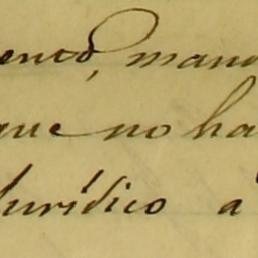 ento, mand
que no ha
Jurídico a